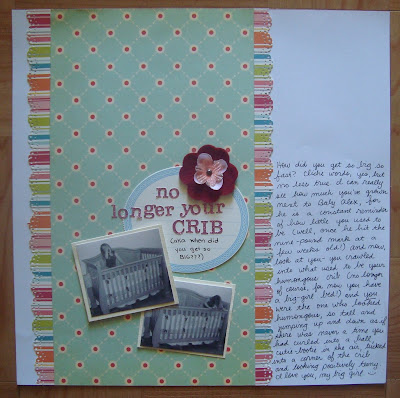 no
longer your
CRIB
(and when did
you get so
BIG???)
How did you get so big so
fast? Cliche words, yes, but
no less true. I can really
see how much you've grown
next to Baby Alex, for
he is a constant reminder
of how little you used to
be (well, once he hit the
nine-pound mark at a
few weeks old!) and now,
look at you - you crawled
into what used to be your
humongous crib (no longer
of course, for now you have
a big-girl bed!) and you
were the one who looked
humongous, so tall and
jumping up and down as if
there was never a time you
had curled into a ball,
cutie-bootie in the air, tucked
into a corner of the crib
and looking positively teeny.
I love you, my big girl.